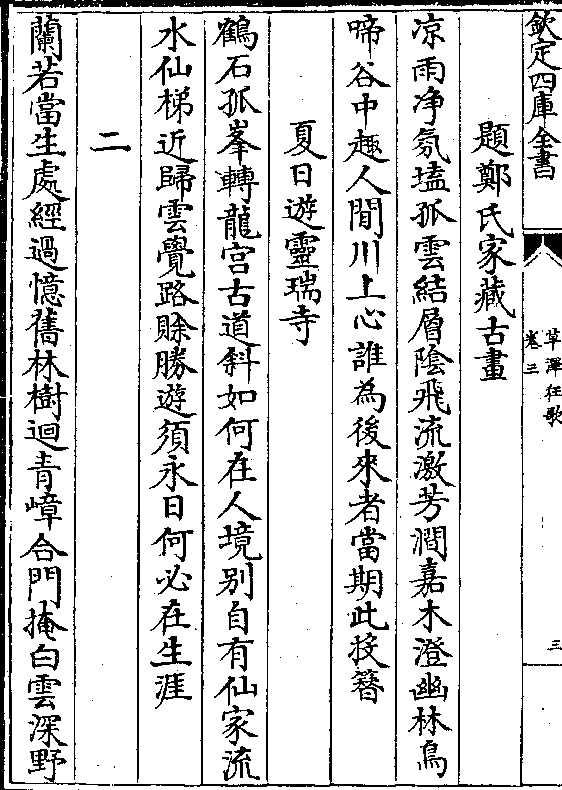 欽定四庫全書
草澤狂歌
卷三
三
題鄭氏家藏古畫
凉雨净氛壒孤雲結層陰飛流激芳澗嘉木澄幽林鳥
啼谷中趣人閒川上心誰為後來者當期此投簪
夏日遊靈瑞寺
鶴石孤峯轉龍宫古道斜如何在人境别自有仙家流
水仙梯近歸雲覺路賒勝遊須永日何必在生涯
二
蘭若當生處經過憶舊林樹迴青嶂合門掩白雲深野